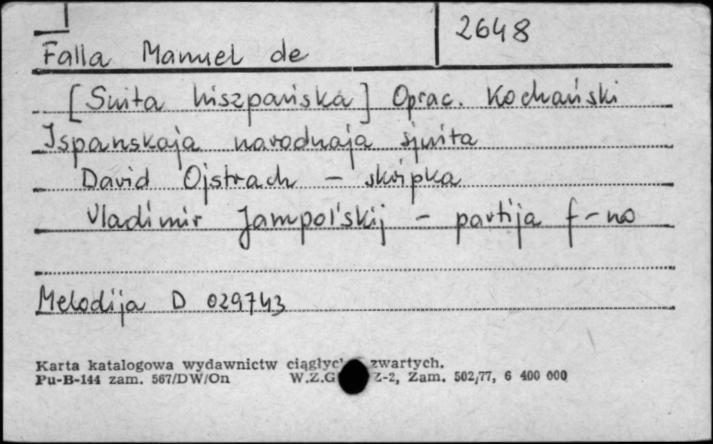 2648
Falla Manuel de
[Suita hiszpańska] Oprac. Kochański
Ispanskaja narodnaja sjuita
David Ojstrach - skripka
Vladimir Jampol'skij - partija f-no
Melodija D 029743
Karta katalogowa wydawnictw ciągłyc zwartych.
Pu-B-144 zam. 567/DW/On W.Z.G Z-2, Zam. 502/77, 6 400 000